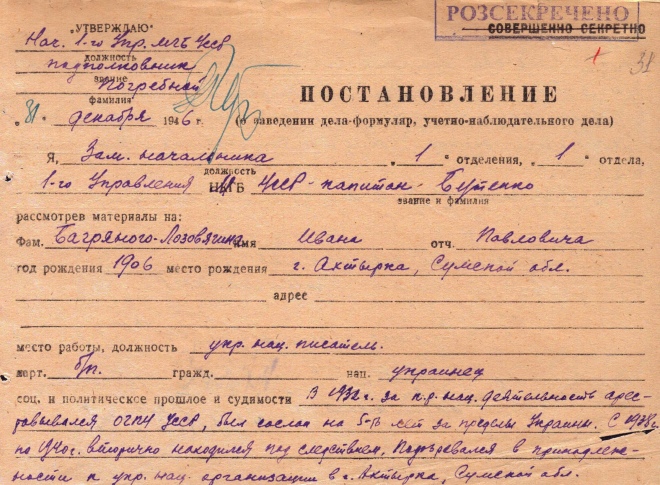 РОЗСЕКРЕЧЕНО
СОВЕРШЕННО СЕКРЕТНО
31
„УТВЕРЖДАЮ“
Нач. 1-го Упр. МГБ УССР
должность
подполковник
звание
Погребной
фамилия
"31" декабря 1946 г.
ПОСТАНОВЛЕНИЕ
(о заведении дела-формуляр, учетно-наблюдательного дела)
Я, Зам. начальника „1“ отделения, „1“ отдела,
должность
1-го Управления МГБ УССР - капитан - Бутенко
звание и фамилия
рассмотрев материалы на:
Фам. Багряного-Лозовягина имя Ивана отч. Павловича
год рождения 1906 место рождения г. Ахтырка, Сумской обл.
адрес
место работы, должность укр. нац. писатель.
парт. б/п. гражд. нац. украинец
соц. и политическое прошлое и судимости В 1932 г. за к.р. нац. деятельность арес-
товывался ОГПУ УССР, был сослан на 5-ть лет за пределы Украины. С 1938 г.
по 1940 г. вторично находился под следствием. Подозревался в принадлеж-
ности к укр. нац. организации в г. Ахтырка, Сумской обл.